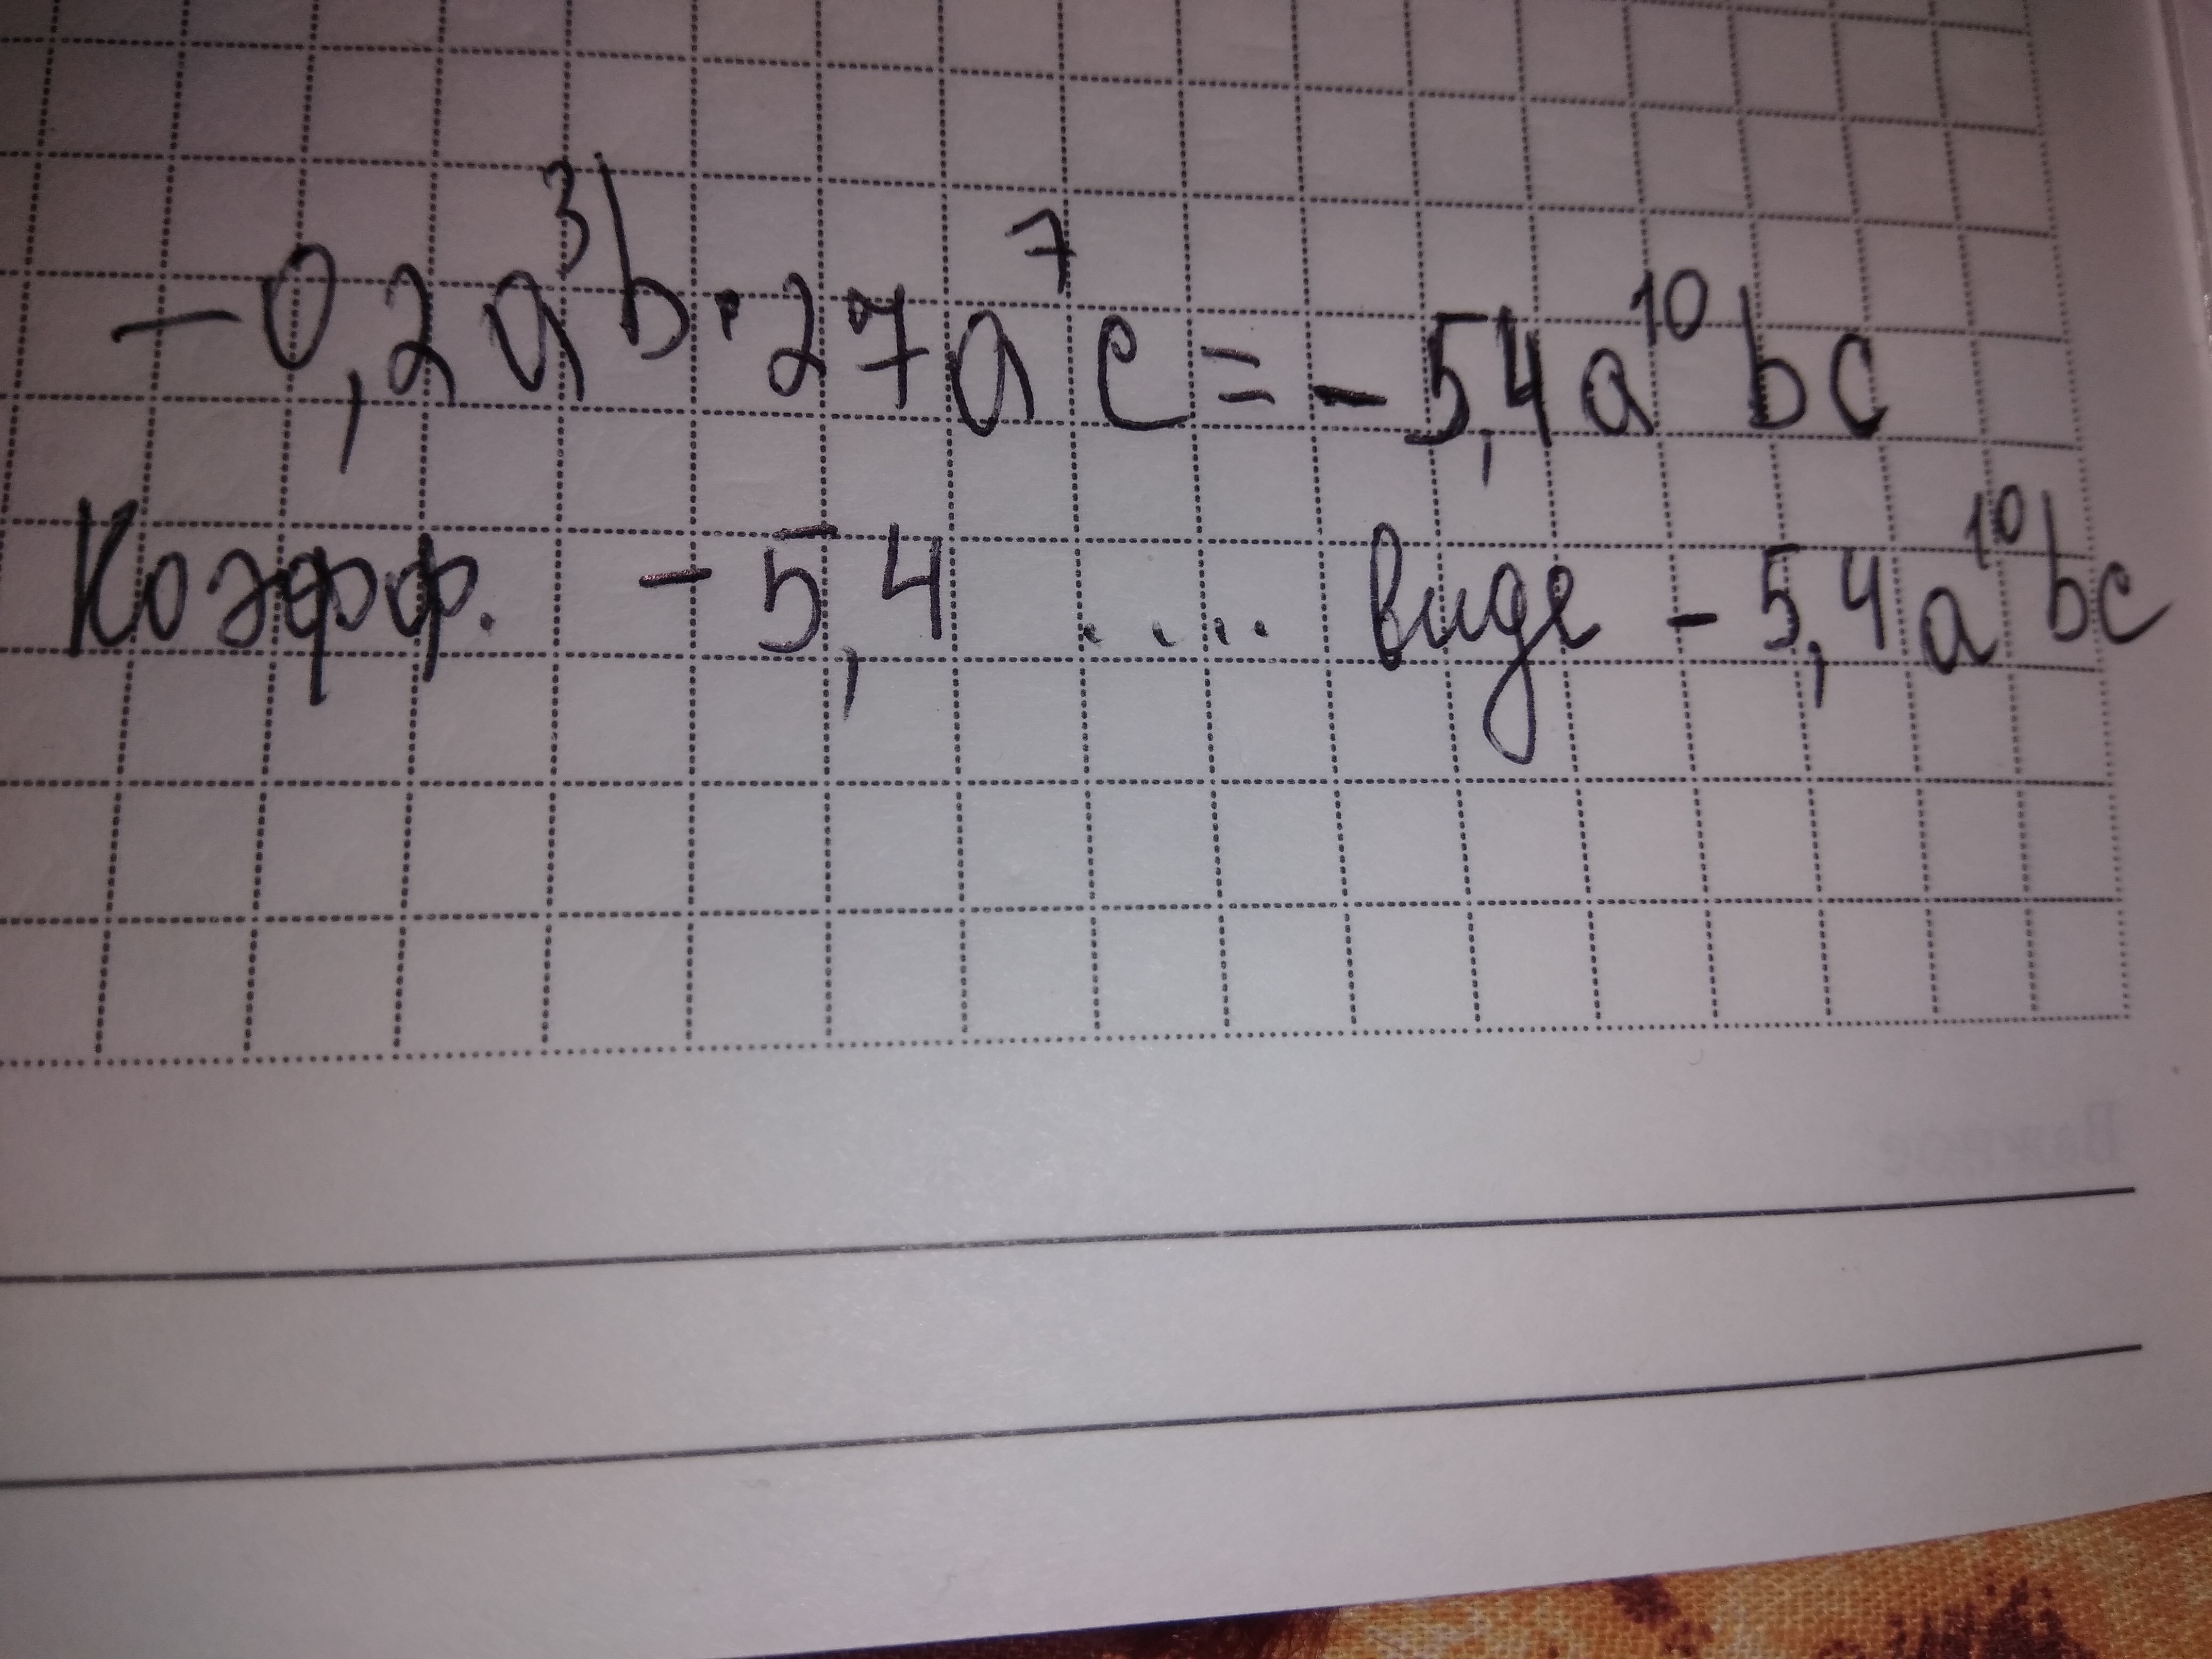 -0,2a³b·27a⁷c=-5,4a¹⁰bc
Коэфф. -5,4 .... виде -5,4a¹⁰bc